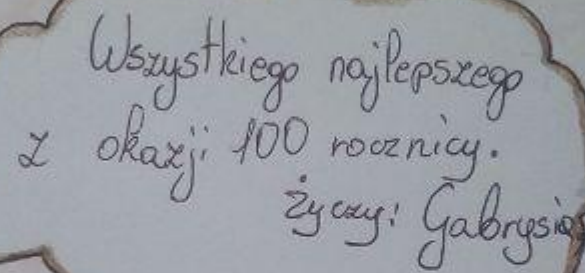 Wszystkiego najlepszego
z okazji 100 rocznicy.
Życzy: Gabrysia